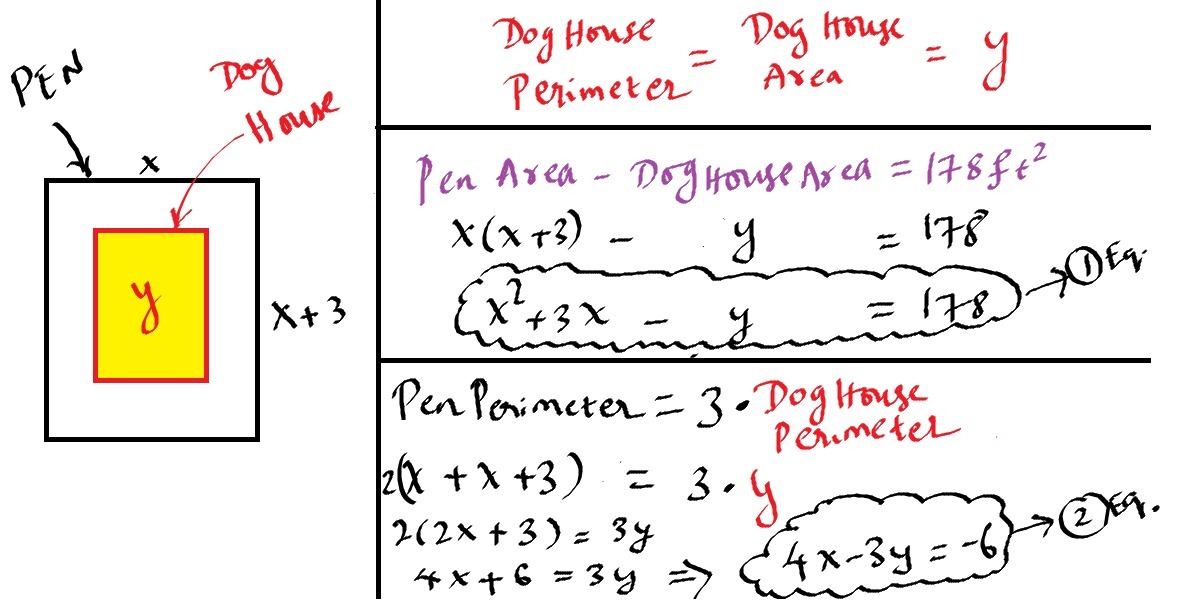 PEN
Dog
House
x
y
x+3
Dog House
Perimeter
=
Dog House
Area
= y
Pen Area - Dog House Area = 178 ft²
x(x+3) - y = 178
x²+3x - y = 178
① Eq.
Pen Perimeter = 3 · Dog House
Perimeter
2(x + x + 3) = 3 · y
2(2x+3) = 3y
4x+6 = 3y ⇒ 4x-3y = -6
② Eq.